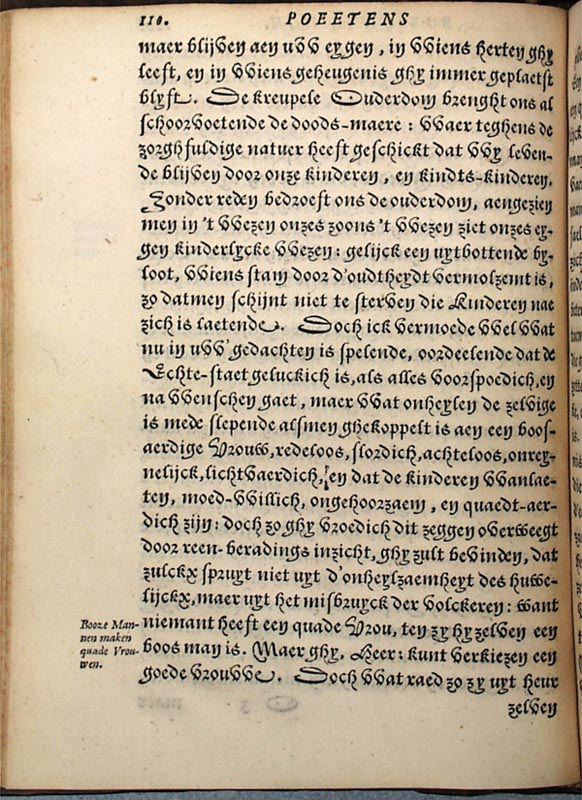 110. POEETENS
maer blijven aen uvv eygen, in vviens herten ghy
leeft, en in vviens geheugenis ghy immer geplaetst
blyft. De kreupele Ouderdom brenght ons al
schoorvoetende de doods-maere: vvaer teghens de
zorghfuldige natuer heeft geschickt dat vvy leven-
de blijven door onze kinderen, en kindts-kinderen.
Zonder reden bedroeft ons de ouderdom, aengezien
men in 't vvezen onzes zoons 't vvezen ziet onzes ey-
gen kinderlycke vvezen: gelijck een uytbottende by-
loot, vviens stam door d'oudtheydt vermolzemt is,
zo datmen schijnt niet te sterven die Kinderen nae
zich is laetende. Doch ick vermoede vvel vvat
nu in uvv' gedachten is spelende, oordeelende dat de
Echte-staet geluckich is, als alles voorspoedich, en
na vvenschen gaet, maer vvat onheylen de zelvige
is mede slepende alsmen ghekoppelt is aen een boos-
aerdige Vrouvv, redeloos, slordich, achteloos, onrey-
nelijck, lichtvaerdich, en dat de kinderen vvanlae-
ten, moed-vvillich, ongehoorzaem, en quaedt-aer-
dich zijn: doch zo ghy vroedich dit zeggen overweegt
door reen-beradings inzicht, ghy zult bevinden, dat
zulckx spruyt niet uyt d'onheylzaemheyt des huwe-
lijckx, maer uyt het misbruyck der volckeren: want
niemant heeft een quade Vrou, ten zy hy zelven een
boos man is. Maer ghy, Heer: kunt verkiezen een
goede vrouvve. Doch vvat raed zo zy uyt heur
zelven
Booze Man-
nen maken
quade Vrou-
wen.